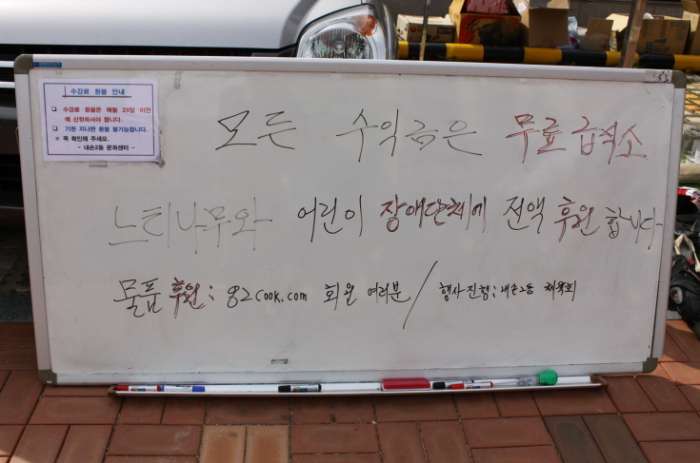 수강료 환불 안내
❏ 수강료 환불은 매월 25일 이전
에 신청하셔야 합니다.
❏ 기한 지나면 환불 불가능합니다.
※ 꼭 확인해 주세요.
- 내손2동 문화센터 -
모든 수익금은 무료급식소
느티나무와 어린이 장애단체에 전액 후원합니다
물품 후원: 82cook.com 회원 여러분 / 행사진행: 내손2동 체육회